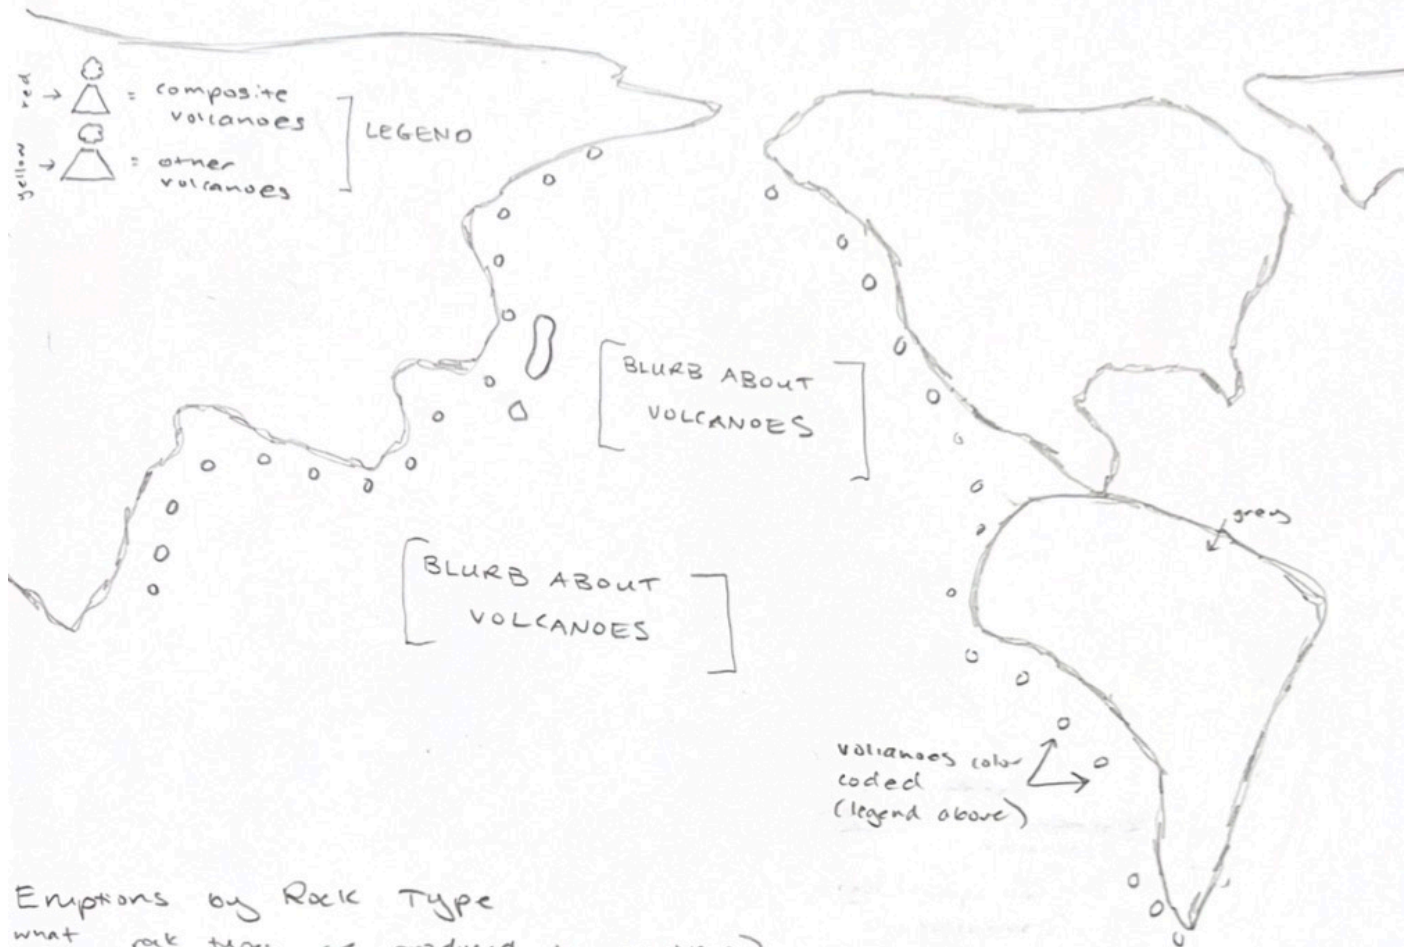 red
composite
volcanoes
LEGEND
yellow
other
volcanoes
BLURB ABOUT
VOLCANOES
grey
BLURB ABOUT
VOLCANOES
volcanoes color
coded
(legend above)
Eruptions by Rock Type
what rock types are produced